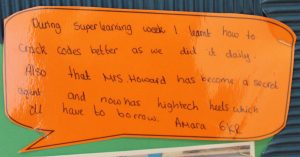 During Superlearning week I learnt how to
crack codes better as we did it daily.
Also that Mrs Howard has become a secret
agent and now has hightech heels which
I'll have to borrow. Amara 6KR